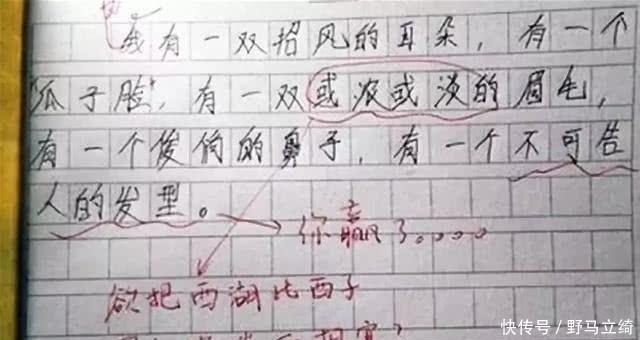 我有一双招风的耳朵，有一个
"瓜子脸"，有一双或浓或淡的眉毛，
有一个俊俏的鼻子，有一个不可告
人的发型。
你赢了。。。。
欲把西湖比西子
快传号/野马立绮